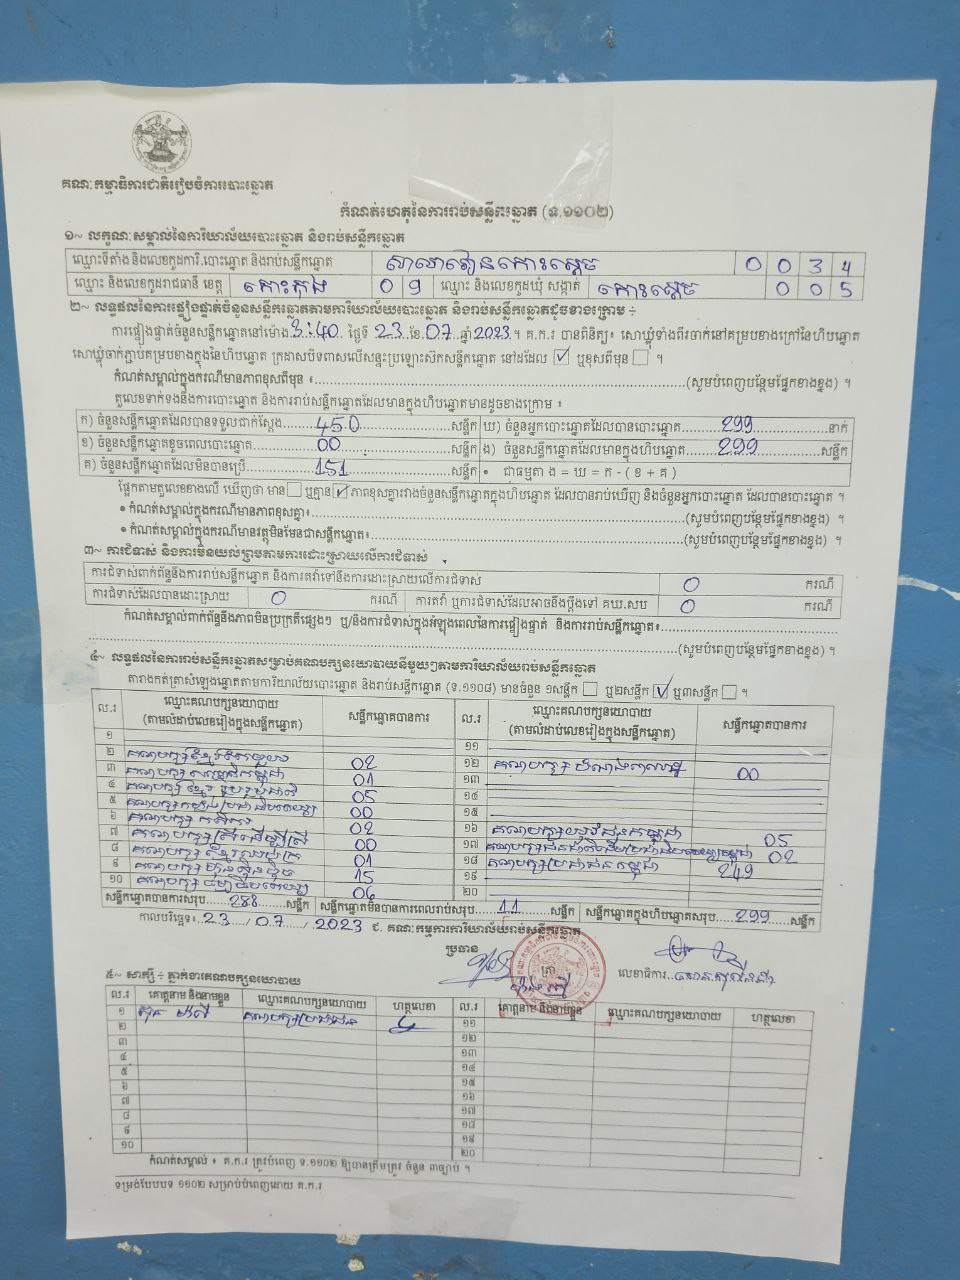 គណៈកម្មាធិការជាតិរៀបចំការបោះឆ្នោត
កំណត់ហេតុនៃការរាប់សន្លឹកឆ្នោត (ទ.១១០២)
១~ លក្ខណៈសម្គាល់នៃការិយាល័យបោះឆ្នោត និងរាប់សន្លឹកឆ្នោត
ឈ្មោះទីតាំង និងលេខកូដការិ.បោះឆ្នោត និងរាប់សន្លឹកឆ្នោត សាលារៀនកោះស្តេច 0 0 3 4
ឈ្មោះ និងលេខកូដរាជធានី ខេត្ត កោះកុង 0 9 ឈ្មោះ និងលេខកូដឃុំ សង្កាត់ កោះស្តេច 0 0 5
២~ លទ្ធផលនៃការផ្ទៀងផ្ទាត់ចំនួនសន្លឹកឆ្នោតតាមការិយាល័យបោះឆ្នោត និងរាប់សន្លឹកឆ្នោតដូចខាងក្រោម ÷
ការផ្ទៀងផ្ទាត់ចំនួនសន្លឹកឆ្នោតនៅម៉ោង 3:40 ថ្ងៃទី 23 ខែ 07 ឆ្នាំ 2023។ គ.ក.រ បានពិនិត្យ៖ សោឃ្លុំទាំងពីរចាក់នៅគម្របខាងក្រៅនៃហិបឆ្នោត
សោឃ្លុំចាក់ភ្ជាប់គម្របខាងក្នុងនៃហិបឆ្នោត ក្រដាសបិទពាសលើសន្ទះប្រឡោះស៊កសន្លឹកឆ្នោត នៅដដែល ☑ ឬខុសពីមុន ☐ ។
កំណត់សម្គាល់ក្នុងករណីមានភាពខុសពីមុន ៖ (សូមបំពេញបន្ថែមផ្នែកខាងខ្នង) ។
តួលេខទាក់ទងនឹងការបោះឆ្នោត និងការរាប់សន្លឹកឆ្នោតដែលមានក្នុងហិបឆ្នោតមានដូចខាងក្រោម ៖
ក) ចំនួនសន្លឹកឆ្នោតដែលបានទទួលជាក់ស្តែង 450 សន្លឹក ឃ) ចំនួនអ្នកបោះឆ្នោតដែលបានបោះឆ្នោត 299 នាក់
ខ) ចំនួនសន្លឹកឆ្នោតខូចពេលបោះឆ្នោត 00 សន្លឹក ង) ចំនួនសន្លឹកឆ្នោតដែលមានក្នុងហិបឆ្នោត 299 សន្លឹក
គ) ចំនួនសន្លឹកឆ្នោតដែលមិនបានប្រើ 151 សន្លឹក • ជាធម្មតា ង = ឃ = ក - ( ខ + គ )
ផ្អែកតាមតួលេខខាងលើ ឃើញថា មាន ☐ ឬគ្មាន ☑ ភាពខុសគ្នារវាងចំនួនសន្លឹកឆ្នោតក្នុងហិបឆ្នោត ដែលបានរាប់ឃើញ និងចំនួនអ្នកបោះឆ្នោត ដែលបានបោះឆ្នោត ។
• កំណត់សម្គាល់ក្នុងករណីមានភាពខុសគ្នា៖ (សូមបំពេញបន្ថែមផ្នែកខាងខ្នង) ។
• កំណត់សម្គាល់ក្នុងករណីមានវត្ថុមិនមែនជាសន្លឹកឆ្នោត៖ (សូមបំពេញបន្ថែមផ្នែកខាងខ្នង) ។
៣~ ការជំទាស់ និងការមិនយល់ព្រមតាមការដោះស្រាយលើការជំទាស់
ការជំទាស់ពាក់ព័ន្ធនឹងការរាប់សន្លឹកឆ្នោត និងការតវ៉ាទៅនឹងការដោះស្រាយលើការជំទាស់ 0 ករណី
ការជំទាស់ដែលបានដោះស្រាយ 0 ករណី ការតវ៉ា ឬការជំទាស់ដែលអាចនឹងប្តឹងទៅ គឃ.សប 0 ករណី
កំណត់សម្គាល់ពាក់ព័ន្ធនឹងភាពមិនប្រក្រតីផ្សេងៗ ឬ/និងការជំទាស់ក្នុងអំឡុងពេលនៃការផ្ទៀងផ្ទាត់ និងការរាប់សន្លឹកឆ្នោត៖
(សូមបំពេញបន្ថែមផ្នែកខាងខ្នង) ។
៤~ លទ្ធផលនៃការរាប់សន្លឹកឆ្នោតសម្រាប់គណបក្សនយោបាយនីមួយៗតាមការិយាល័យរាប់សន្លឹកឆ្នោត
តារាងកត់ត្រាសំឡេងឆ្នោតតាមការិយាល័យបោះឆ្នោត និងរាប់សន្លឹកឆ្នោត (ទ.១១០៨) មានចំនួន ១សន្លឹក ☐ ឬ២សន្លឹក ☑ ឬ៣សន្លឹក ☐ ។
ល.រ ឈ្មោះគណបក្សនយោបាយ (តាមលំដាប់លេខរៀងក្នុងសន្លឹកឆ្នោត) សន្លឹកឆ្នោតបានការ ល.រ ឈ្មោះគណបក្សនយោបាយ (តាមលំដាប់លេខរៀងក្នុងសន្លឹកឆ្នោត) សន្លឹកឆ្នោតបានការ
១ ១១
២ គណបក្ស 02 ១២ គណបក្ស 00
៣ គណបក្ស 01 ១៣
៤ គណបក្ស ខ្មែររួបរួមជាតិ 05 ១៤
៥ គណបក្ស 00 ១៥
៦ គណបក្ស កសិករ 02 ១៦ គណបក្សយុវជនកម្ពុជា 05
៧ គណបក្សស្ត្រីដើម្បីស្ត្រី 00 ១៧ គណបក្ស 02
៨ គណបក្ស 01 ១៨ គណបក្សប្រជាជនកម្ពុជា 249
៩ គណបក្ស ហ៊្វុនស៊ិនប៉ិច 15 ១៩
១០ គណបក្ស 06 ២០
សន្លឹកឆ្នោតបានការសរុប 288 សន្លឹក សន្លឹកឆ្នោតមិនបានការពេលរាប់សរុប 11 សន្លឹក សន្លឹកឆ្នោតក្នុងហិបឆ្នោតសរុប 299 សន្លឹក
កាលបរិច្ឆេទ៖ 23 / 07 / 2023 ជ. គណៈកម្មការការិយាល័យរាប់សន្លឹកឆ្នោត
ប្រធាន
ត្រា
លេខាធិការ
៥~ សាក្សី ÷ ភ្នាក់ងារគណបក្សនយោបាយ
ល.រ គោត្តនាម និងនាមខ្លួន ឈ្មោះគណបក្សនយោបាយ ហត្ថលេខា ល.រ គោត្តនាម និងនាមខ្លួន ឈ្មោះគណបក្សនយោបាយ ហត្ថលេខា
១ គណបក្សប្រជាជន ១១
២ ១២
៣ ១៣
៤ ១៤
៥ ១៥
៦ ១៦
៧ ១៧
៨ ១៨
៩ ១៩
១០ ២០
កំណត់សម្គាល់ ៖ គ.ក.រ ត្រូវបំពេញ ទ.១១០២ ឱ្យបានត្រឹមត្រូវ ចំនួន ៣ច្បាប់ ។
ទម្រង់បែបបទ ១១០២ សម្រាប់បំពេញដោយ គ.ក.រ